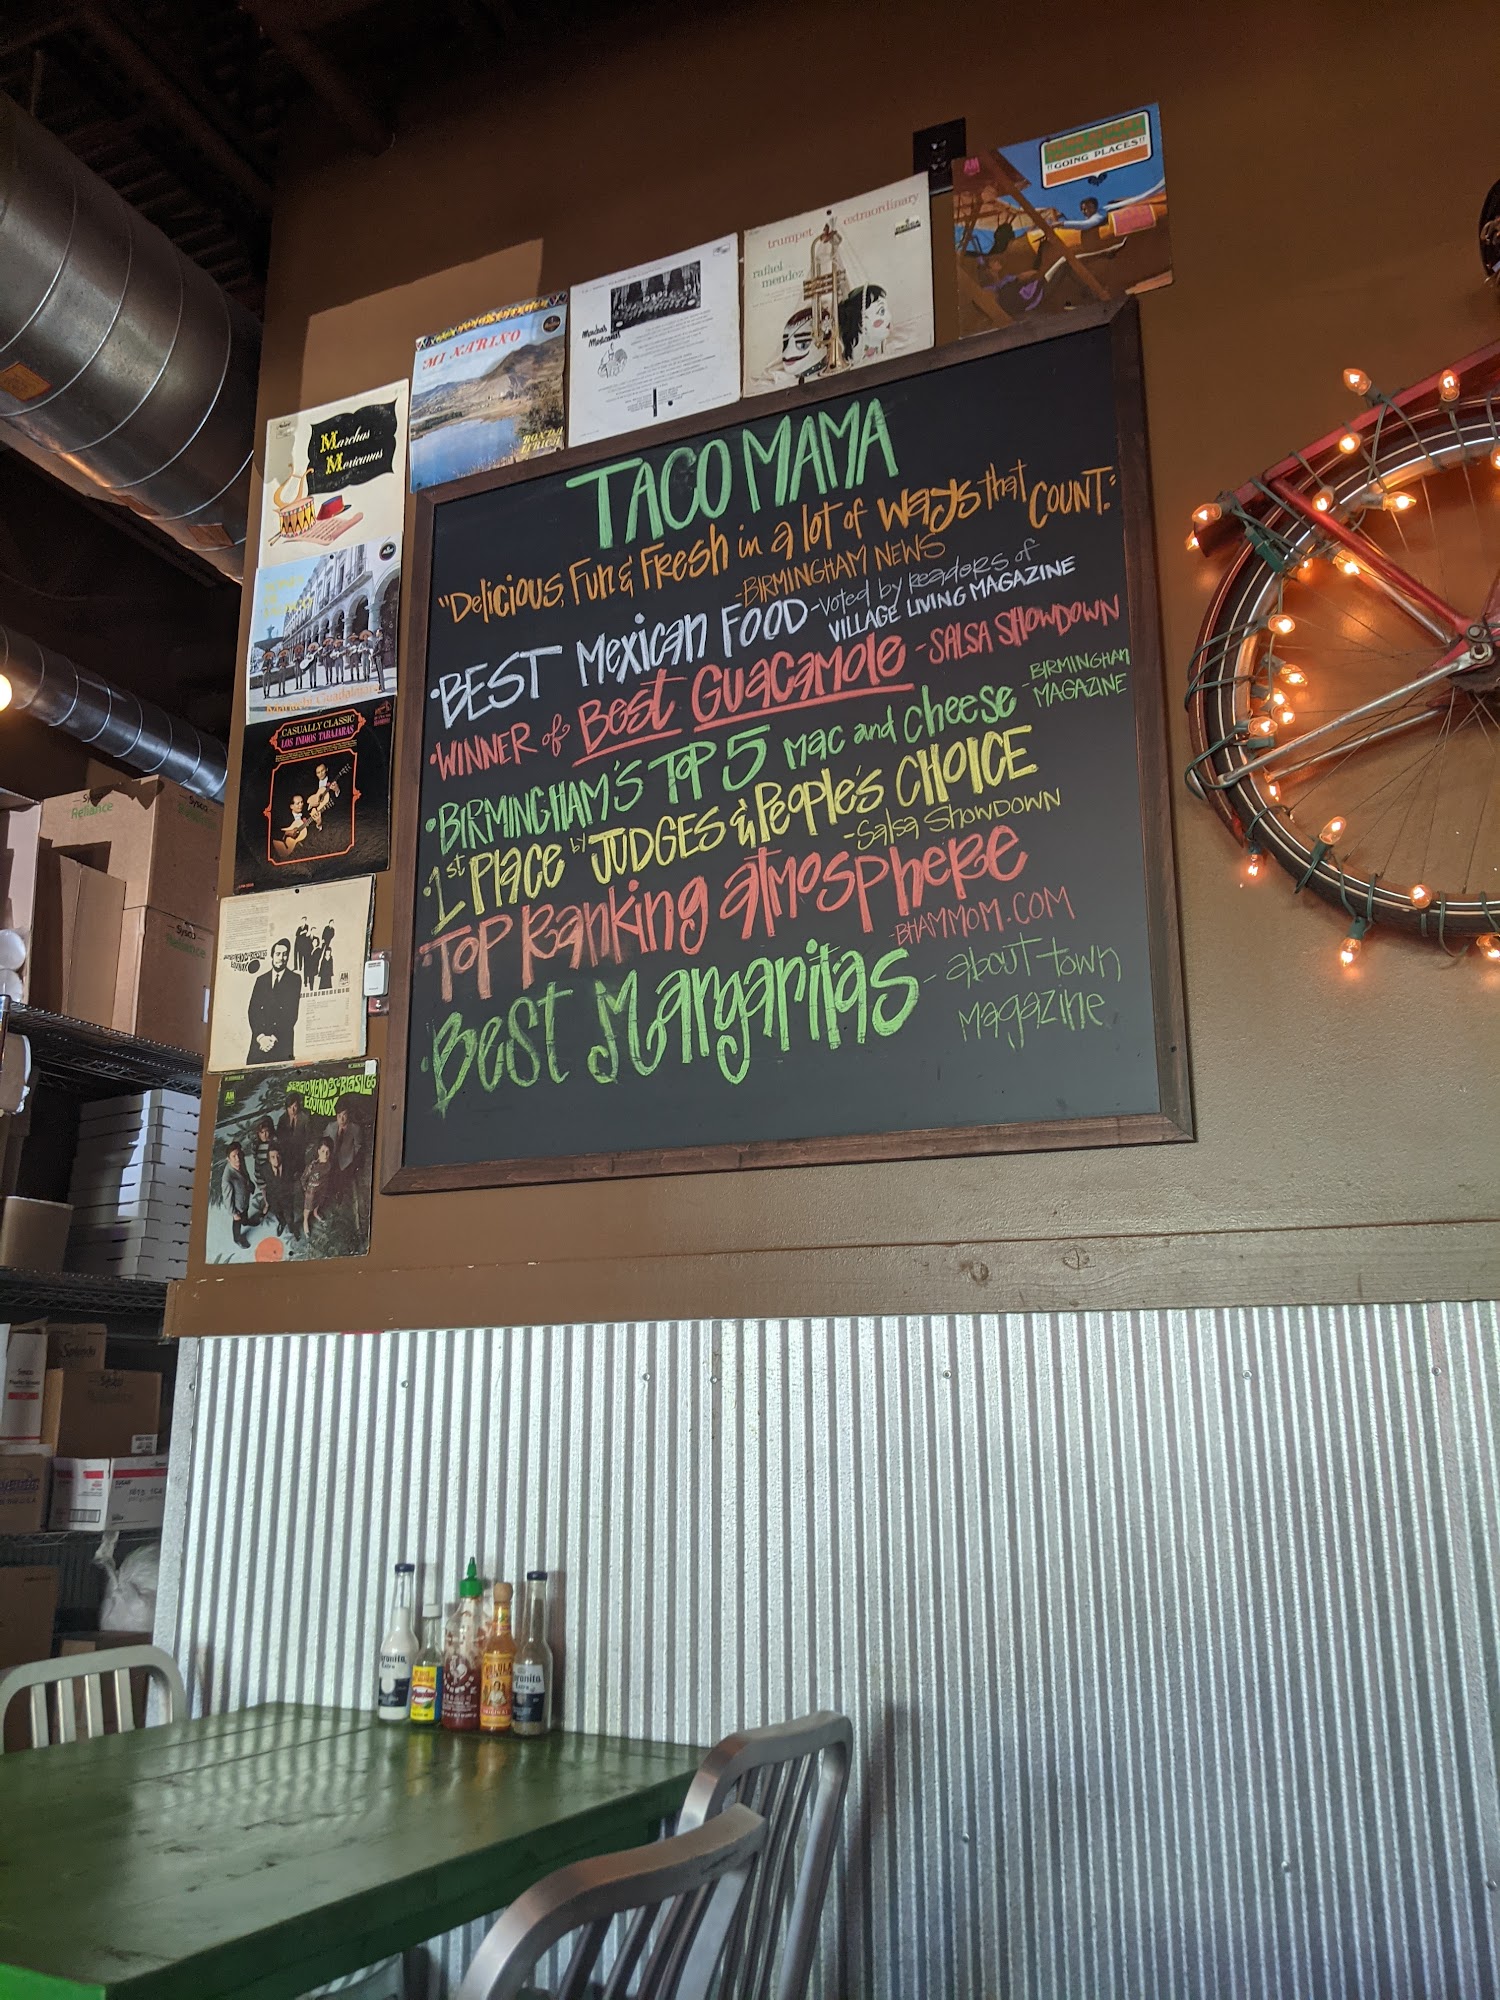 !!GOING PLACES!!
trumpet extraordinary
rafael mendez
DECCA
MI NARIÑO
RONDA LIRICA
Marchas Mexicanas
Marchas
Mexicanas
CASUALLY CLASSIC
LOS INDIOS TABAJARAS
A&M
SERGIO MENDES & BRASIL 66
EQUINOX
TACO MAMA
"Delicious, Fun & Fresh in a lot of ways that COUNT."
-BIRMINGHAM NEWS
•BEST Mexican FOOD -voted by readers of
VILLAGE LIVING MAGAZINE
•WINNER of Best GUACAMOLE -SALSA SHOWDOWN
•BIRMINGHAM'S TOP 5 Mac and Cheese - BIRMINGHAM
MAGAZINE
•1st Place by JUDGES & People's CHOICE
-Salsa Showdown
•Top Ranking atmosphere
-BHAMMOM.COM
•Best Margaritas - about town
magazine
Sysco
Reliance
Sysco
Sysco
CHOLULA
ORIGINAL